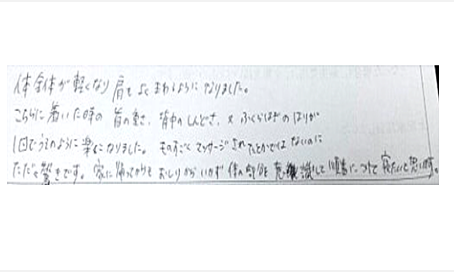 体全体が軽くなり肩もよくまわるようになりました。
こちらに着いた時の首の重さ、背中のしんどさ、又ふくらはぎのはりが
1回でうそのように楽になりました。ものすごくマッサージされたとかではないのに
ただただ驚きです。家に帰ってからもおしりからいかず体の部分を意識して順番につけて寝たいと思います。